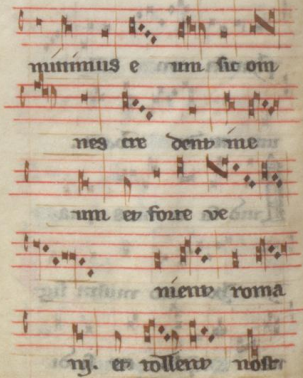 mittimus e um sic om
nes cre dent in e
um et forte ve
nient roma
nj. et tollent nostr